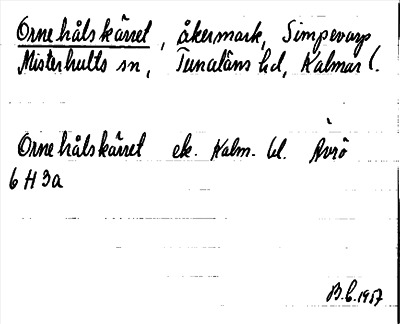 Ornehålskärret, åkermark, Simpevarp
Misterhults sn, Tunaläns hd, Kalmar l.
Ornehålskärret ek. Kalm. bl. Ävrö
6 H 3a